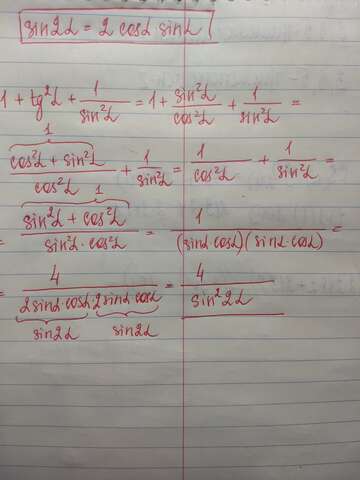 sin2α = 2 cosα sinα
1 + tg²α + 1/sin²α = 1 + sin²α/cos²α + 1/sin²α =
1
(cos²α + sin²α)/cos²α + 1/sin²α = 1/cos²α + 1/sin²α =
1
= (sin²α + cos²α)/(sin²α · cos²α) = 1/((sinα cosα)(sinα · cosα)) =
= 4/(2 sinα · cosα · 2 sinα cosα) = 4/sin²2α
sin2α sin2α